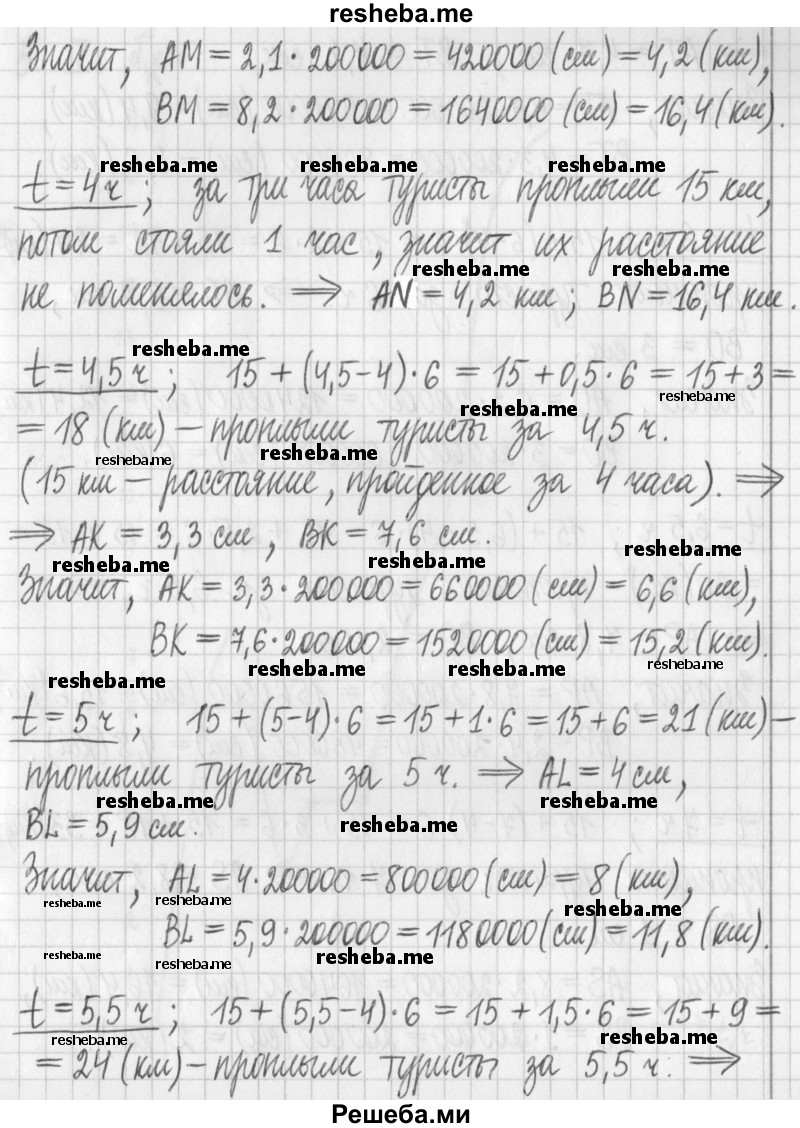 resheba.me
Значит, AM = 2,1 · 200000 = 420000 (см) = 4,2 (км),
BM = 8,2 · 200000 = 1640000 (см) = 16,4 (км).
resheba.me resheba.me resheba.me
t = 4 ч ; за три часа туристы проплыли 15 км,
потом стояли 1 час, значит их расстояние
resheba.me resheba.me
не поменялось. ⟹ AN = 4,2 км ; BN = 16,4 км.
resheba.me
t = 4,5 ч ; 15 + (4,5 - 4) · 6 = 15 + 0,5 · 6 = 15 + 3 =
resheba.me resheba.me
= 18 (км) – проплыли туристы за 4,5 ч.
resheba.me resheba.me
(15 км – расстояние, пройденное за 4 часа). ⟹
⟹ AK = 3,3 см , BK = 7,6 см.
resheba.me resheba.me resheba.me
Значит, AK = 3,3 · 200000 = 660000 (см) = 6,6 (км),
BK = 7,6 · 200000 = 1520000 (см) = 15,2 (км).
resheba.me resheba.me resheba.me resheba.me
t = 5 ч ; 15 + (5 - 4) · 6 = 15 + 1 · 6 = 15 + 6 = 21 (км) –
проплыли туристы за 5 ч. ⟹ AL = 4 см,
resheba.me resheba.me
BL = 5,9 см.
resheba.me
Значит, AL = 4 · 200000 = 800000 (см) = 8 (км),
resheba.me resheba.me resheba.me
BL = 5,9 · 200000 = 1180000 (см) = 11,8 (км).
resheba.me resheba.me resheba.me
t = 5,5 ч ; 15 + (5,5 - 4) · 6 = 15 + 1,5 · 6 = 15 + 9 =
resheba.me resheba.me
= 24 (км) – проплыли туристы за 5,5 ч. ⟹
Решеба.ми